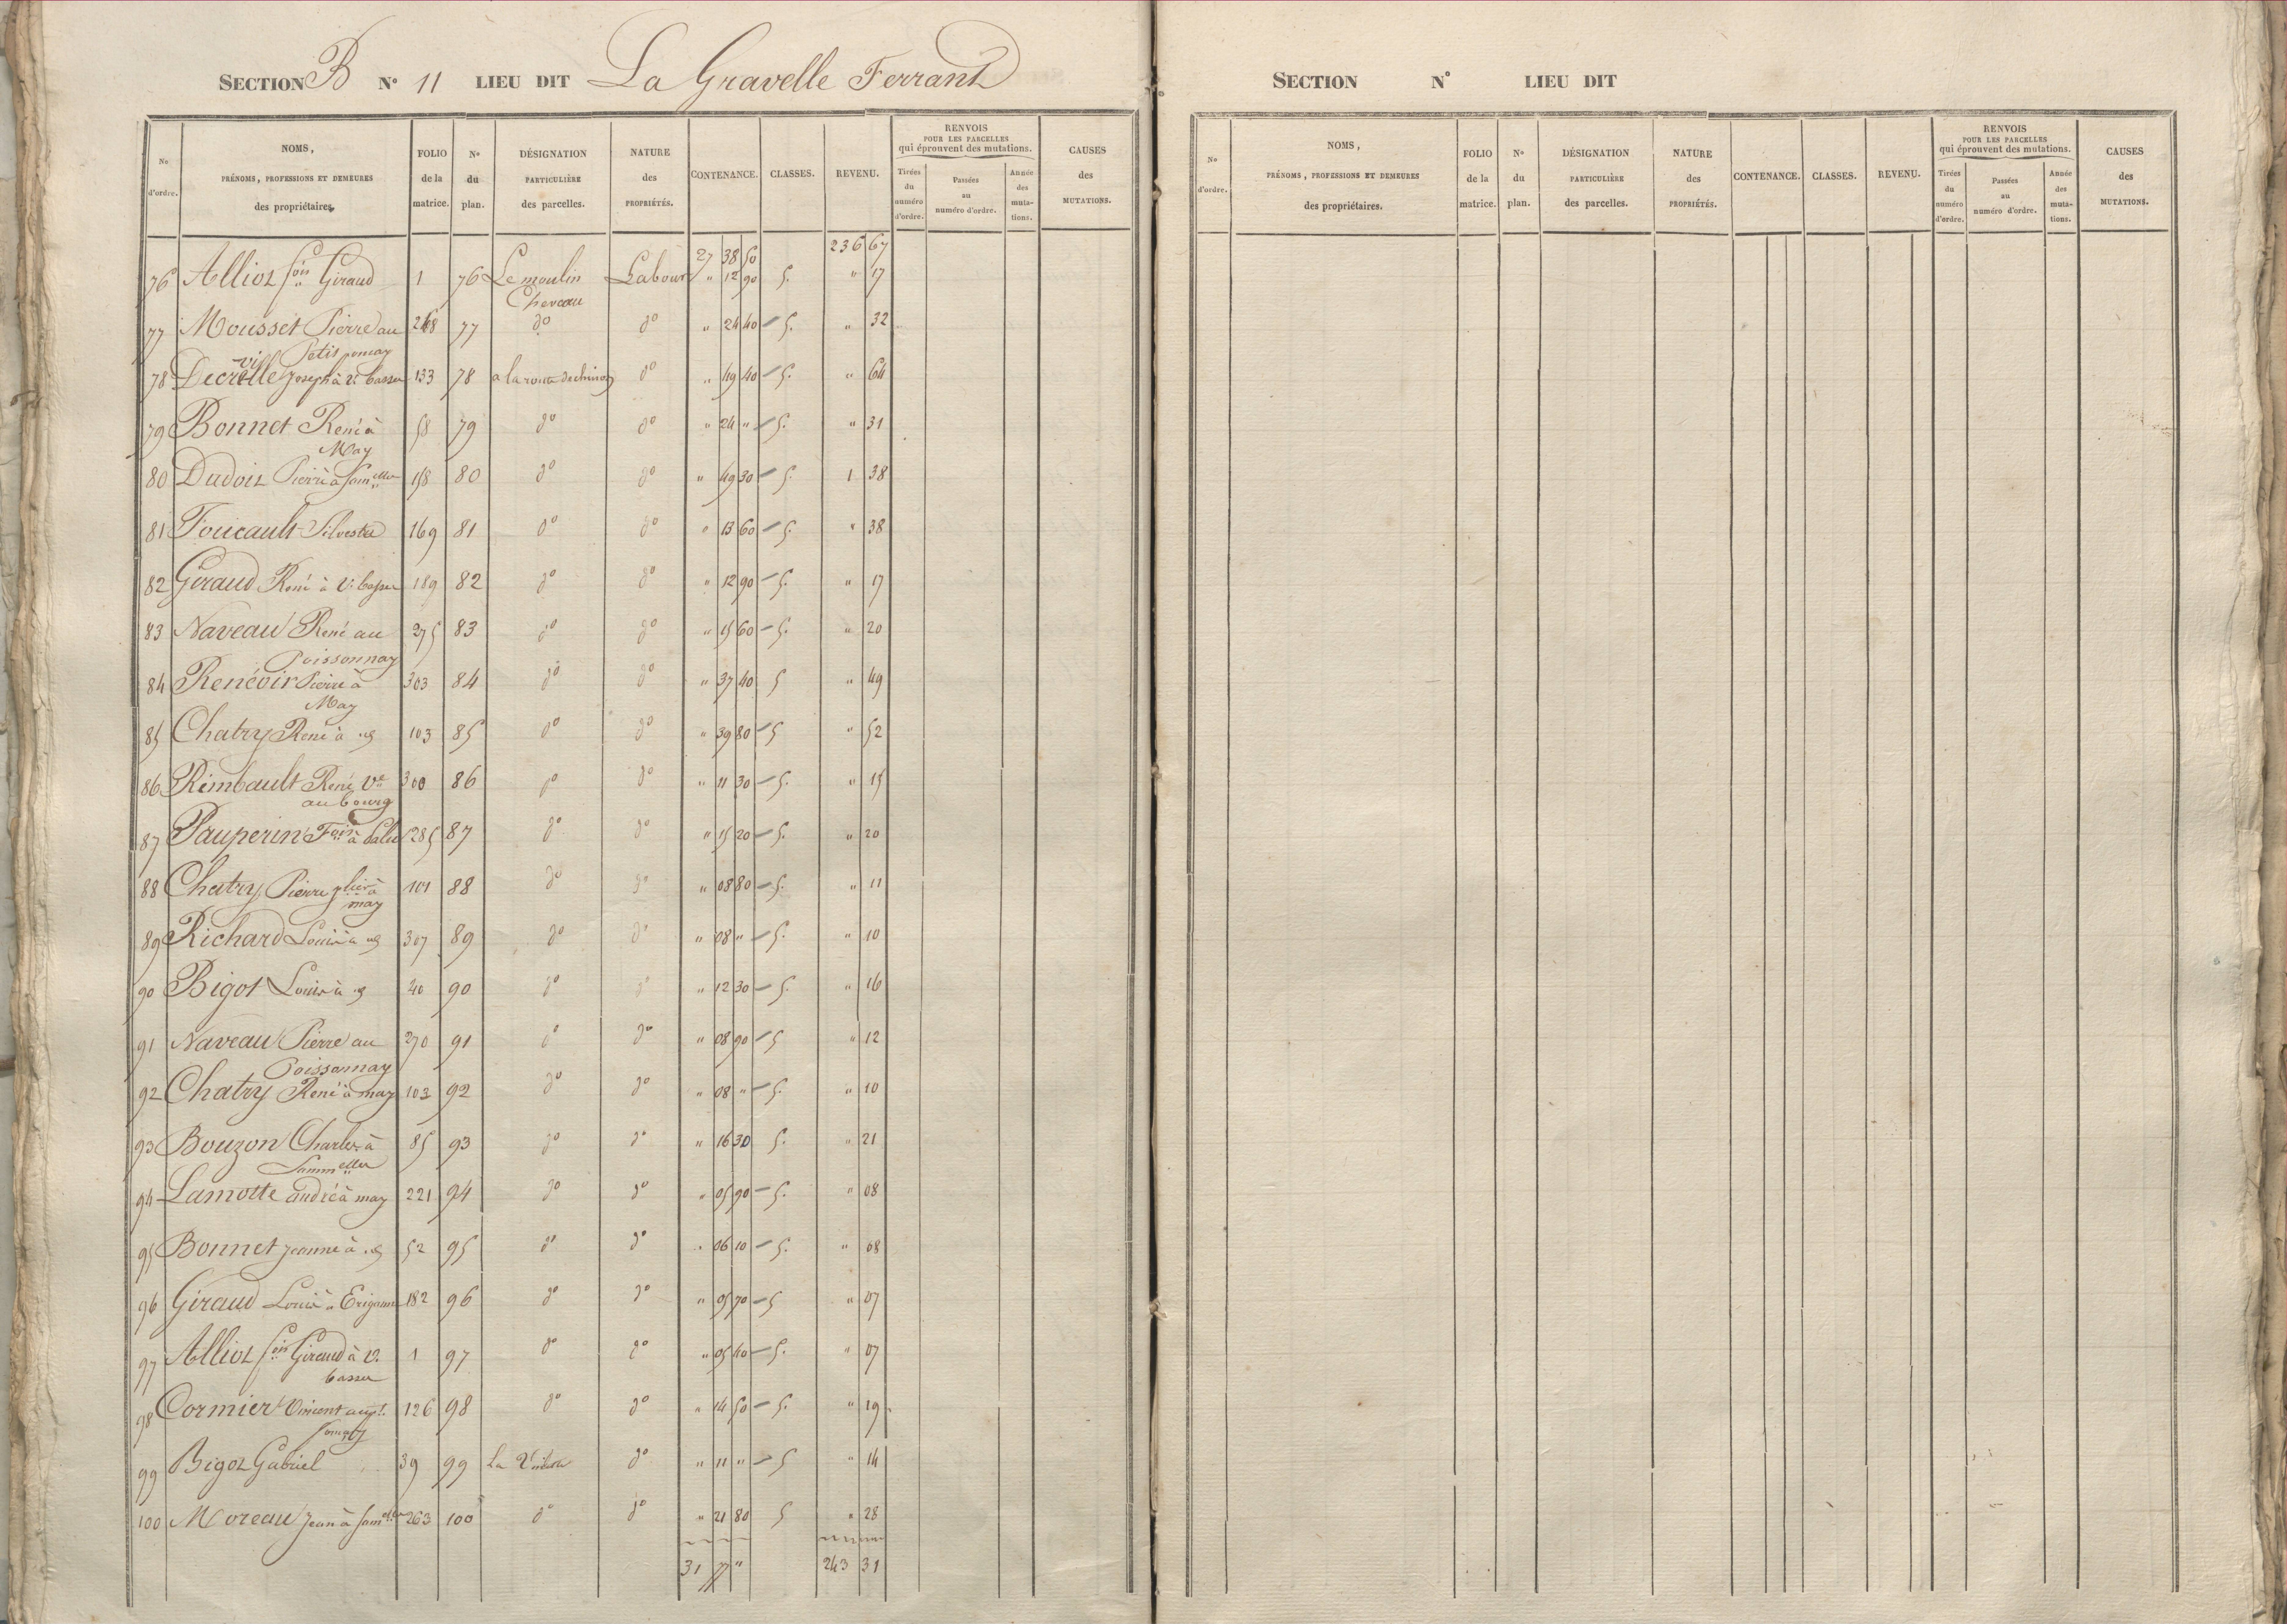 SECTION B N° 11 LIEU DIT La Gravelle Ferrant
No d'ordre. NOMS, PRÉNOMS, PROFESSIONS ET DEMEURES des propriétaires. FOLIO de la matrice. No du plan. DÉSIGNATION PARTICULIÈRE des parcelles. NATURE des PROPRIÉTÉS. CONTENANCE. CLASSES. REVENU. RENVOIS POUR LES PARCELLES qui éprouvent des mutations. Tirées du numéro d'ordre. Passées au numéro d'ordre. Année des mutations. CAUSES des MUTATIONS.
27 38 50 236 67
76 Alliot fois Giraud 1 76 Le moulin Labour " 12 90 5. " 17
Cheveau
77 Mousset Pierre au 268 77 do do " 24 40 5. " 32
Petit
78 Joseph à v. basse 133 78 a la route de chinon do " 49 40 5. " 64
79 Bonnet René à 58 79 do do " 24 " 5. " 31
May
80 Dudoit Pierre à 158 80 do do " 49 30 5. 1 38
81 Foucault Silvestre 169 81 do do " 13 60 5. " 38
82 Giraud René à v. basse 189 82 do do " 12 90 5. " 17
83 Naveau René au 275 83 do do " 15 60 5. " 20
Poissonnay
84 Renévoir Pierre à 303 84 do do " 37 40 5 " 49
May
85 Chatry René à 103 85 do do " 39 80 5 " 52
86 Rimbault René Ve 300 86 do do " 11 30 5. " 15
au bourg
87 Pauperin Fois à 285 87 do do " 15 20 5. " 20
88 Chatry Pierre à 101 88 do do " 08 80 5. " 11
may
89 Richard Louis à 307 89 do do " 08 " 5. " 10
90 Bigot Louis à 40 90 do do " 12 30 5. " 16
91 Naveau Pierre au 270 91 do do " 08 90 5 " 12
Poissonnay
92 Chatry René à may 103 92 do do " 08 " 5. " 10
93 Bouzon Charles à 85 93 do do " 16 30 5. " 21
94 Lamotte andré à may 221 94 do do " 05 90 5. " 08
95 Bonnet jeanne à 52 95 do do " 06 10 5. " 08
96 Giraud Louis à 182 96 do do " 05 70 5 " 07
97 Alliot fois Giraud à v. 1 97 do do " 05 40 5. " 07
basse
98 Cormier Vincent au 126 98 do do " 14 50 5. " 19
99 Bigot Gabriel 39 99 La do " 11 " 5 " 14
100 Moreau Jean à 263 100 do do " 21 80 5 " 28
31 77 " 243 31
SECTION N° LIEU DIT
No d'ordre. NOMS, PRÉNOMS, PROFESSIONS ET DEMEURES des propriétaires. FOLIO de la matrice. No du plan. DÉSIGNATION PARTICULIÈRE des parcelles. NATURE des PROPRIÉTÉS. CONTENANCE. CLASSES. REVENU. RENVOIS POUR LES PARCELLES qui éprouvent des mutations. Tirées du numéro d'ordre. Passées au numéro d'ordre. Année des mutations. CAUSES des MUTATIONS.